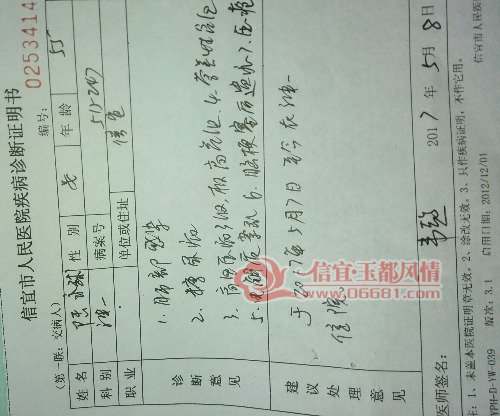 信宜市人民医院疾病诊断证明书
编号: 0253414
(第一联: 交病人)
姓名 陈 性别 女 年龄 55
科别 神一 病案号 515247
职业 单位或住址 信宜
诊断意见
1. 肺部感染
2. 糖尿病
3. 高血压病3级, 极高危组 4.
5. 6. 脑梗塞后遗症 7.
建议处理意见
于2017年5月7日至今在神一
住院。
医师签名:
2017 年 5 月 8 日
注: 1、未盖本医院证明章无效。2、涂改无效。3、只作疾病证明, 不作它用。
PH-D-YW-039 版次: 3.1 启用日期: 2012/12/01 信宜市人民医
信宜·玉都风情
www.06681.com